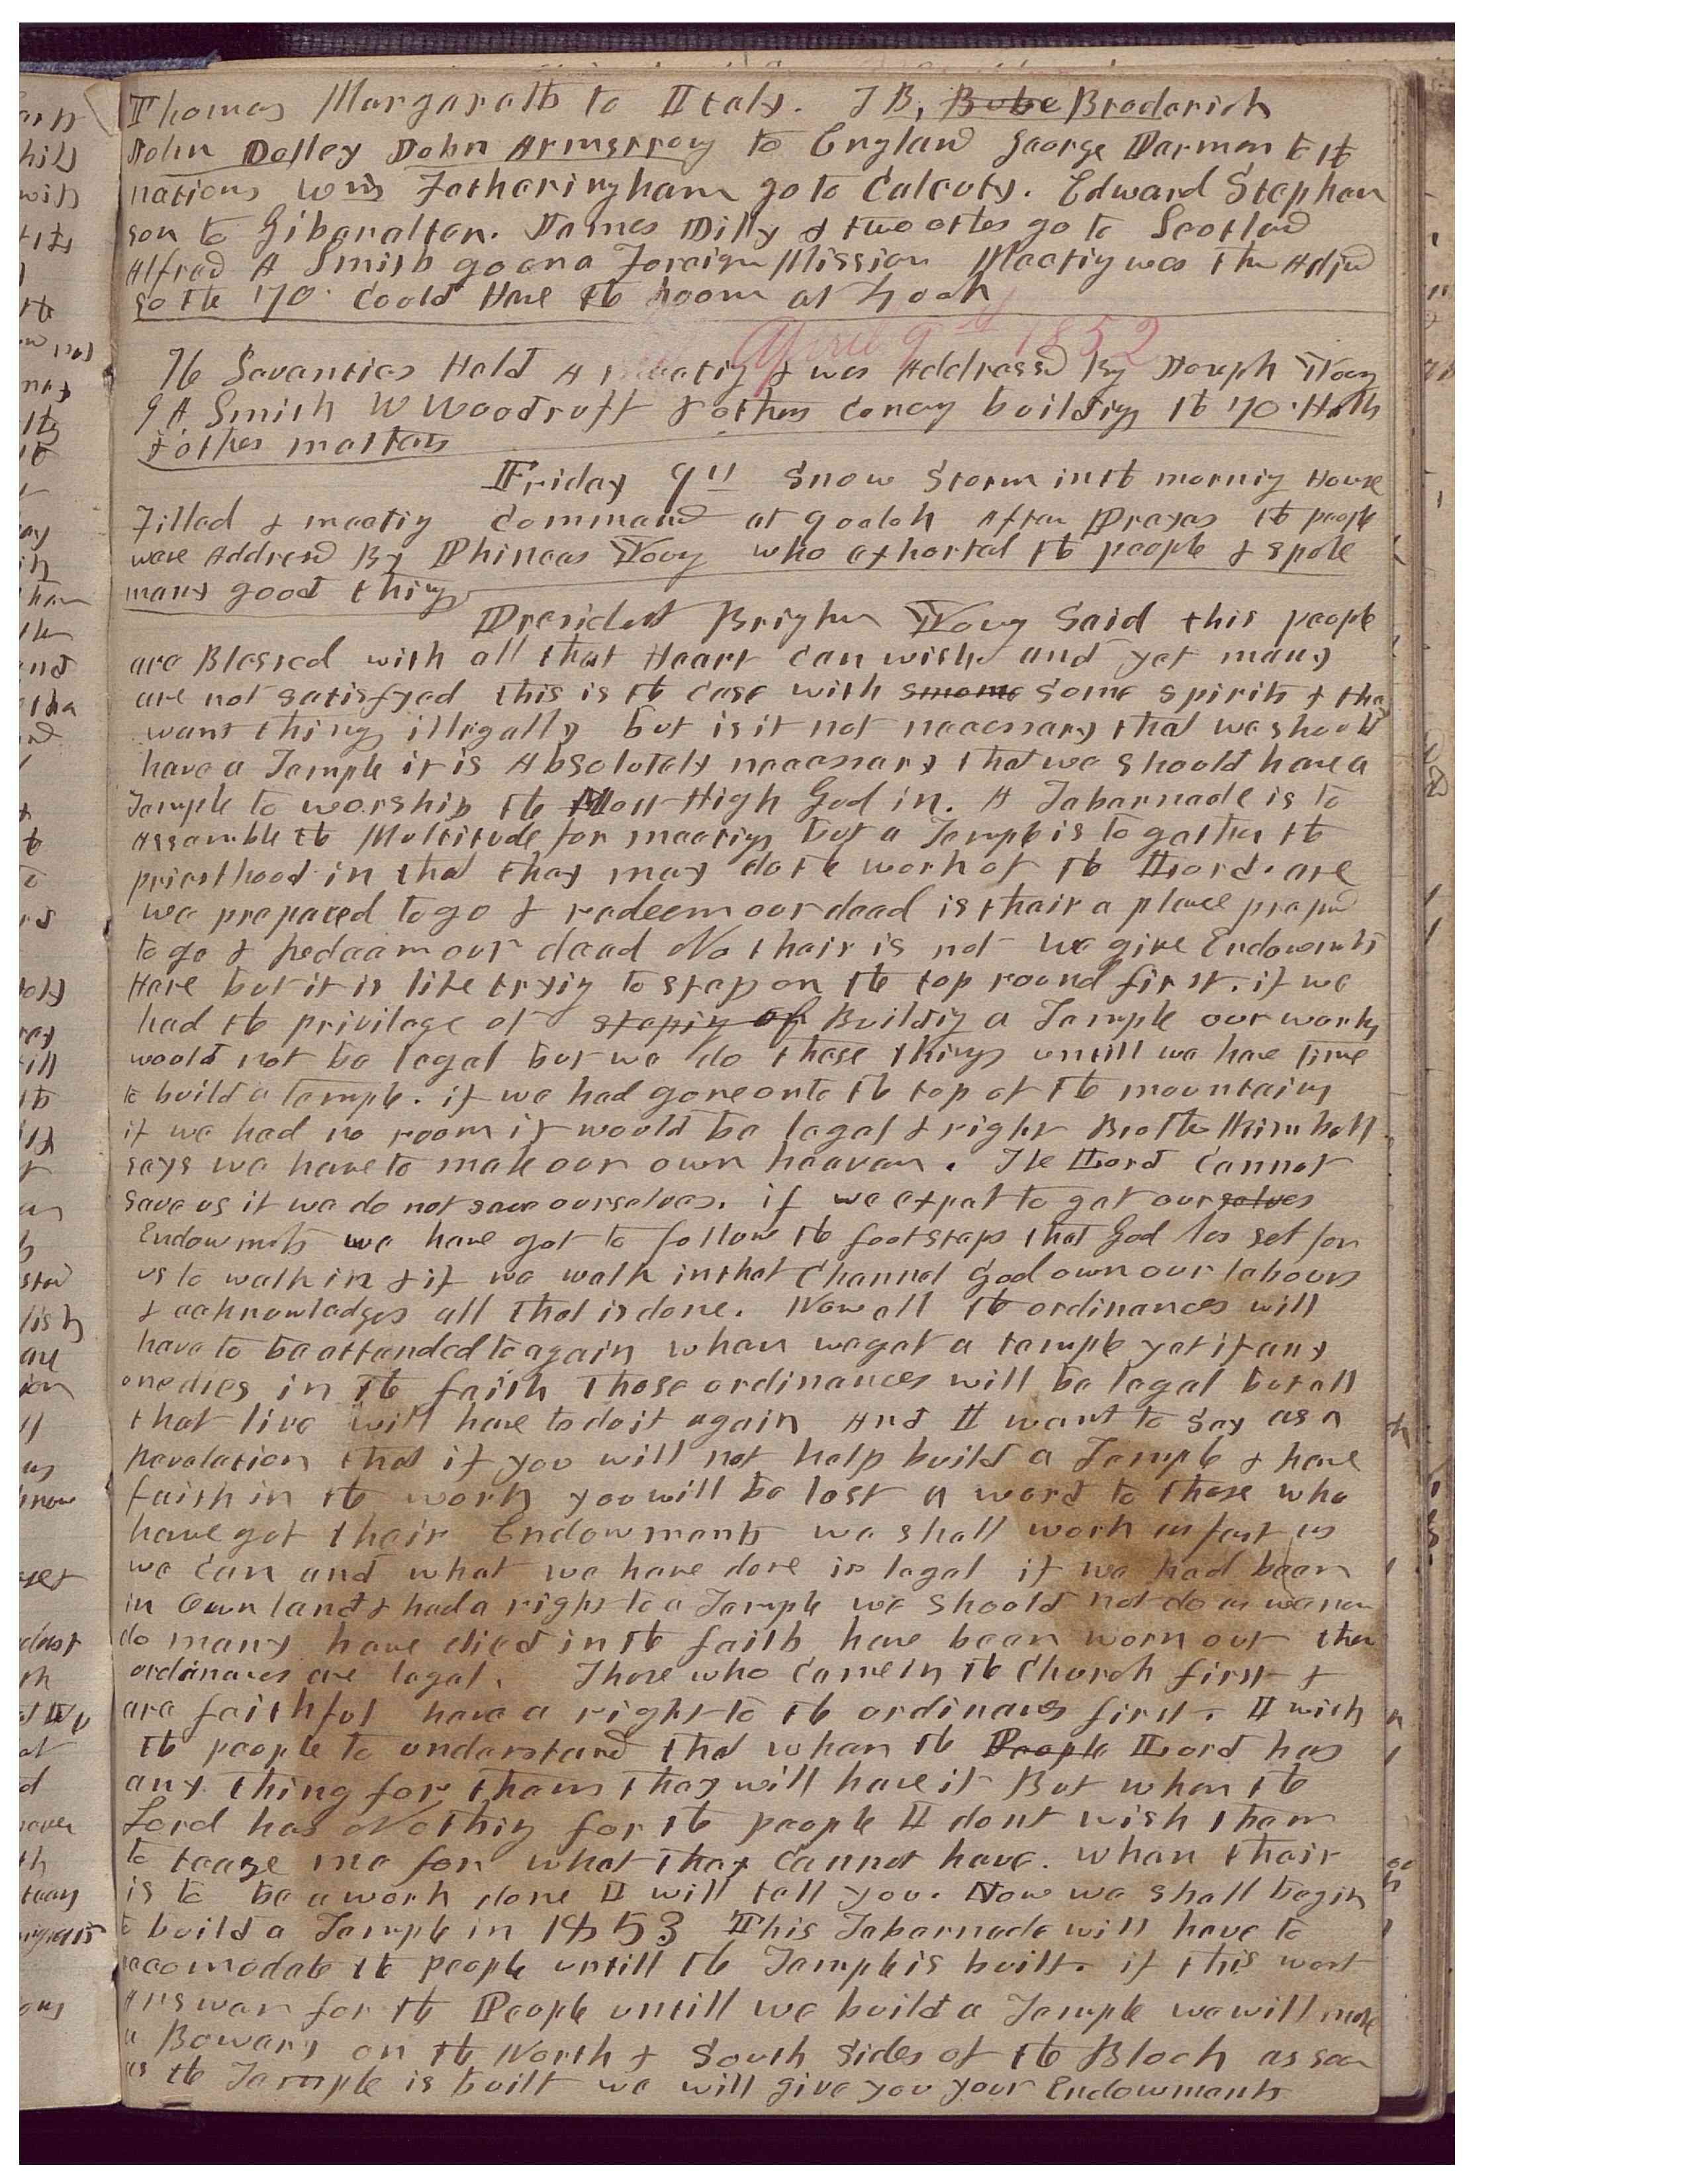 Thomas Margaratts to Italy. J B, Bube Broderick
John Dolley John Armstrong to England George Parmen to the
nations Wm Fotheringham go to Calcuty. Edward Stephen
son to Gibaralter. James Dilly & two others go to Scotland
Alfred A Smith go on a Foreign Mission Meetig was then Adjnd
so the 70 Could Have the Room at 4 ock
April 9th 1852
The Seventies Held A Meetig & was Addressd By Joseph Young
G A Smith W Woodruff & others Concng buildig the 70s Hall
& other matters
Friday 9th Snow Storm in the mornig House
Filled & meetig Commend at 9 oclok After Prayer the people
were Addresd By Phineas Young who exhorted the people & spoke
many good things
President Brigham Young Said this people
are Blessed with all that Heart Can wish and yet many
are not satisfyed this is the Case with smome some spirits & they
want things illegally but is it not necessary that we should
have a Temple it is Absolutely necessary that we should have a
Temple to worship the Most High God in. A Tabernacle is to
Assemble the Multitude for meetigs but a Temple is to gather the
priesthood in that they may do the work of the Lord. are
we prepared to go & redeem our dead is their a place prepard
to go & Redeem our dead No their is not We give Endowments
Here but it is like tryig to step on the top round first. if we
had the privilege of stepig of Buildig a Temple our works
would not be legal but we do these things untill we have time
to build a temple. if we had gone onto the top of the mountains
if we had no room it would be legal & right Brother Kimball
says we have to make our own heaven. The Lord Cannot
save us if we do not save ourselves. if we expect to get ourselves
Endowmets we have got to follow the footsteps that God has set for
us to walk in & if we walk in that Channel God own our labours
& acknowledges all that is done. Now all the ordinances will
have to be attended to again when we get a temple yet if any
one dies in the faith those ordinances will be legal but all
that live will have to do it again And I want to say as a
Revelation that if you will not help build a Temple & have
faith in the work you will be lost a word to those who
have got their Endowments we shall work as fast as
we Can and what we have done is legal if we had been
in Our land & had a right to a Temple we should not do as we now
do many have died in the faith have been worn out their
ordinances are legal. Those who Came in the Church first &
are faithful have a right to the ordinances first. I wish
the people to understand that when the People Lord has
any thing for them they will have it But when the
Lord has Nothig for the people I dont wish them
to teaze me for what they Cannot have. When their
is to be a work done I will tell you. Now we shall begin
to build a Temple in 1853 This Tabernacle will have to
accomodate the people untill the Temple is built. if this wont
Answer for the People untill we build a Temple we will make
a Bowery on the North & South Sides of the Block as soon
as the Temple is built we will give you your Endowments